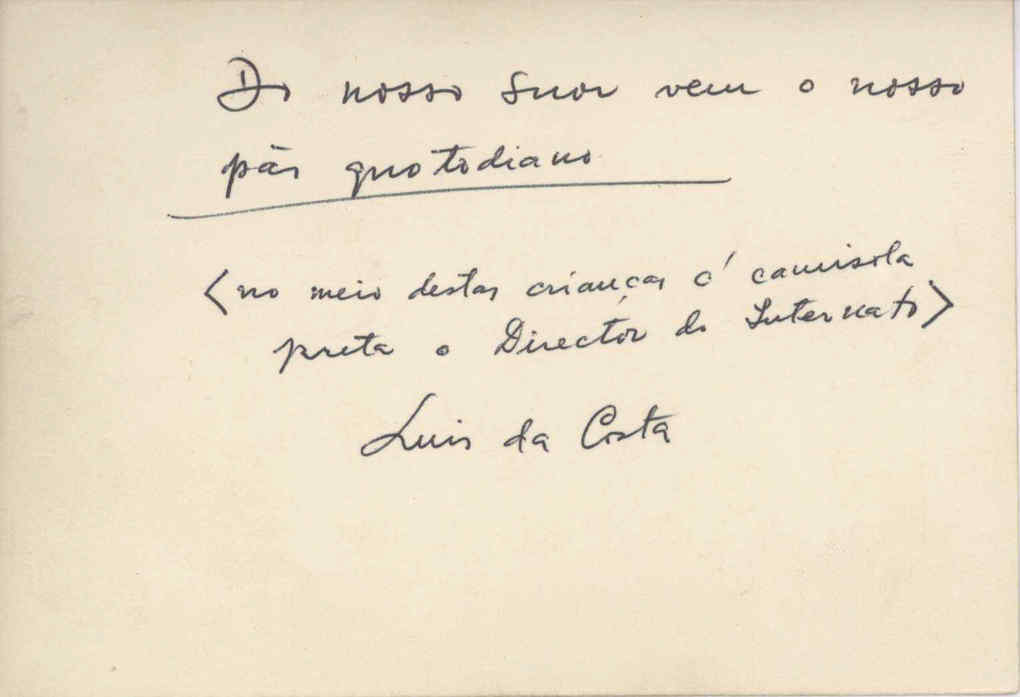 Do nosso suor vem o nosso
pão quotodiano
<no meio destas crianças c/ camisola
preta o Director do Internato>
Luis da Costa